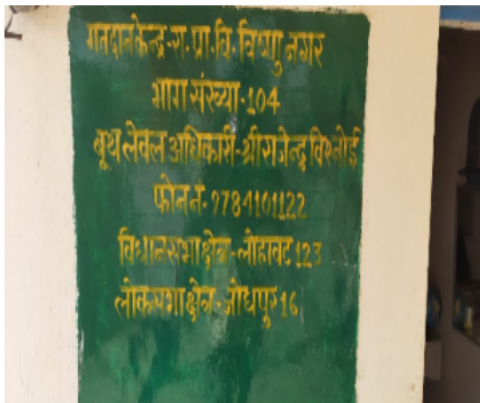 मतदान केन्द्र-रा. प्रा. वि. विष्णु नगर
भाग संख्या-104
बूथ लेवल अधिकारी-श्री राजेन्द्र विश्नोई
फोन न.- 9784101122
विधानसभा क्षेत्र-लोहावट 123
लोकसभा क्षेत्र-जोधपुर 16